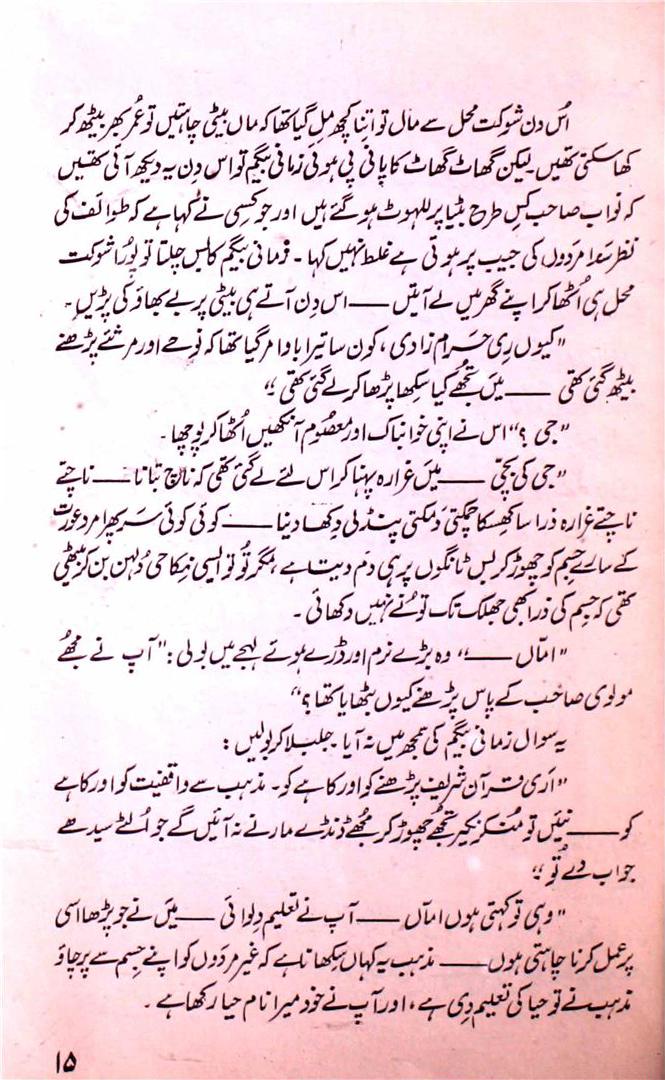 اُس دن شوکت محل سے مال تو اتنا کچھ مل گیا تھا کہ ماں بیٹی چاہتیں تو عُمر بھر بیٹھ کر
کھا سکتی تھیں۔ لیکن گھاٹ گھاٹ کا پانی پی ہوئی زمانی بیگم تو اس دن یہ دیکھ آئی تھیں
کہ نواب صاحب کس طرح بٹیا پر للہوٹ ہو گئے ہیں اور جو کسی نے کہا ہے کہ طوائف کی
نظر سدا مردوں کی جیب پر ہوتی ہے غلط نہیں کہا۔ زمانی بیگم کا بس چلتا تو پُورا شوکت
محل ہی اُٹھا کر اپنے گھر میں لے آتیں —— اس دن آتے ہی بیٹی پر بے بھاؤ کی پڑیں۔
"کیوں ری حرام زادی، کون سا تیرا باوا مر گیا تھا کہ نوحے اور مرثئے پڑھنے
بیٹھ گئی تھی —— میں تجھے کیا سکھا پڑھا کر لے گئی تھی؟"
"جی؟" اس نے اپنی خوابناک اور معصُوم آنکھیں اُٹھا کر پوچھا۔
"جی کی بچّی —— میں غرارہ پہنا کر اس لئے لے گئی تھی کہ ناچ بتانا —— ناچتے
ناچتے غرارہ ذرا سا کھسکا چمکتی دمکتی پنڈلی دکھا دینا —— کوئی کوئی سر پھرا مرد عورت
کے سارے جسم کو چھوڑ کر بس ٹانگوں پر ہی دم دیتا ہے، مگر تُو تو ایسی نکاحی دُلہن بن کر بیٹھی
تھی کہ جسم کی ذرا بھی جھلک تک تو نے نہیں دکھائی۔
"امّاں ——" وہ بڑے نرم اور ڈرے ہوئے لہجے میں بولی: "آپ نے مجھے
مولوی صاحب کے پاس پڑھنے کیوں بٹھایا تھا؟"
یہ سوال زمانی بیگم کی سمجھ میں نہ آیا۔ جلبلا کر بولیں:
"اَری قرآن شریف پڑھنے کو اور کا ہے کو۔ مذہب سے واقفیت کو اور کا ہے
کو —— نئیں تو مُنکر نکیر تجھے چھوڑ کر مجھے ڈنڈے مارنے نہ آئیں گے جو اُلٹے سیدھے
جواب دے تُو؟"
"وہی تو کہتی ہوں امّاں —— آپ نے تعلیم دِلوائی —— میں نے جو پڑھا اسی
پر عمل کرنا چاہتی ہوں —— مذہب یہ کہاں سکھاتا ہے کہ غیر مردوں کو اپنے جسم سے پرچاؤ
مذہب نے تو حیا کی تعلیم دی ہے، اور آپ نے خود میرا نام حیا رکھا ہے۔
۱۵